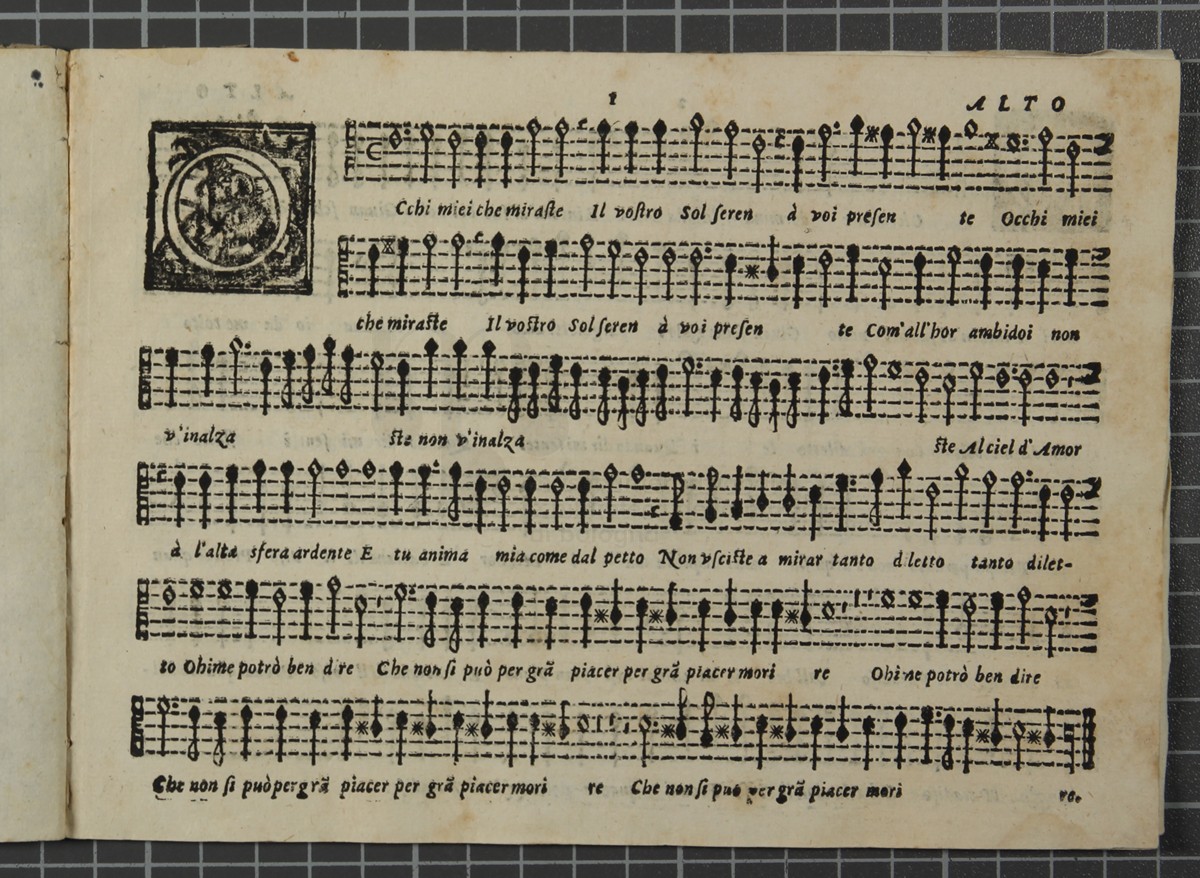 1
ALTO
O
Cchi miei che miraſte Il voſtro Sol ſeren à voi preſen te Occhi miei
che miraſte Il voſtro Sol ſeren à voi preſen te Com'all'hor ambidoi non
v'inalza ſte non v'inalza ſte Al ciel d'Amor
à l'alta sfera ardente E tu anima mia come dal petto Non vſciſte a mirar tanto diletto tanto dilet-
to Ohime potrò ben dire Che non ſi può per grã piacer per grã piacer mori re Ohime potrò ben dire
Che non ſi può per grã piacer per grã piacer mori re Che non ſi può per grã piacer mori re.